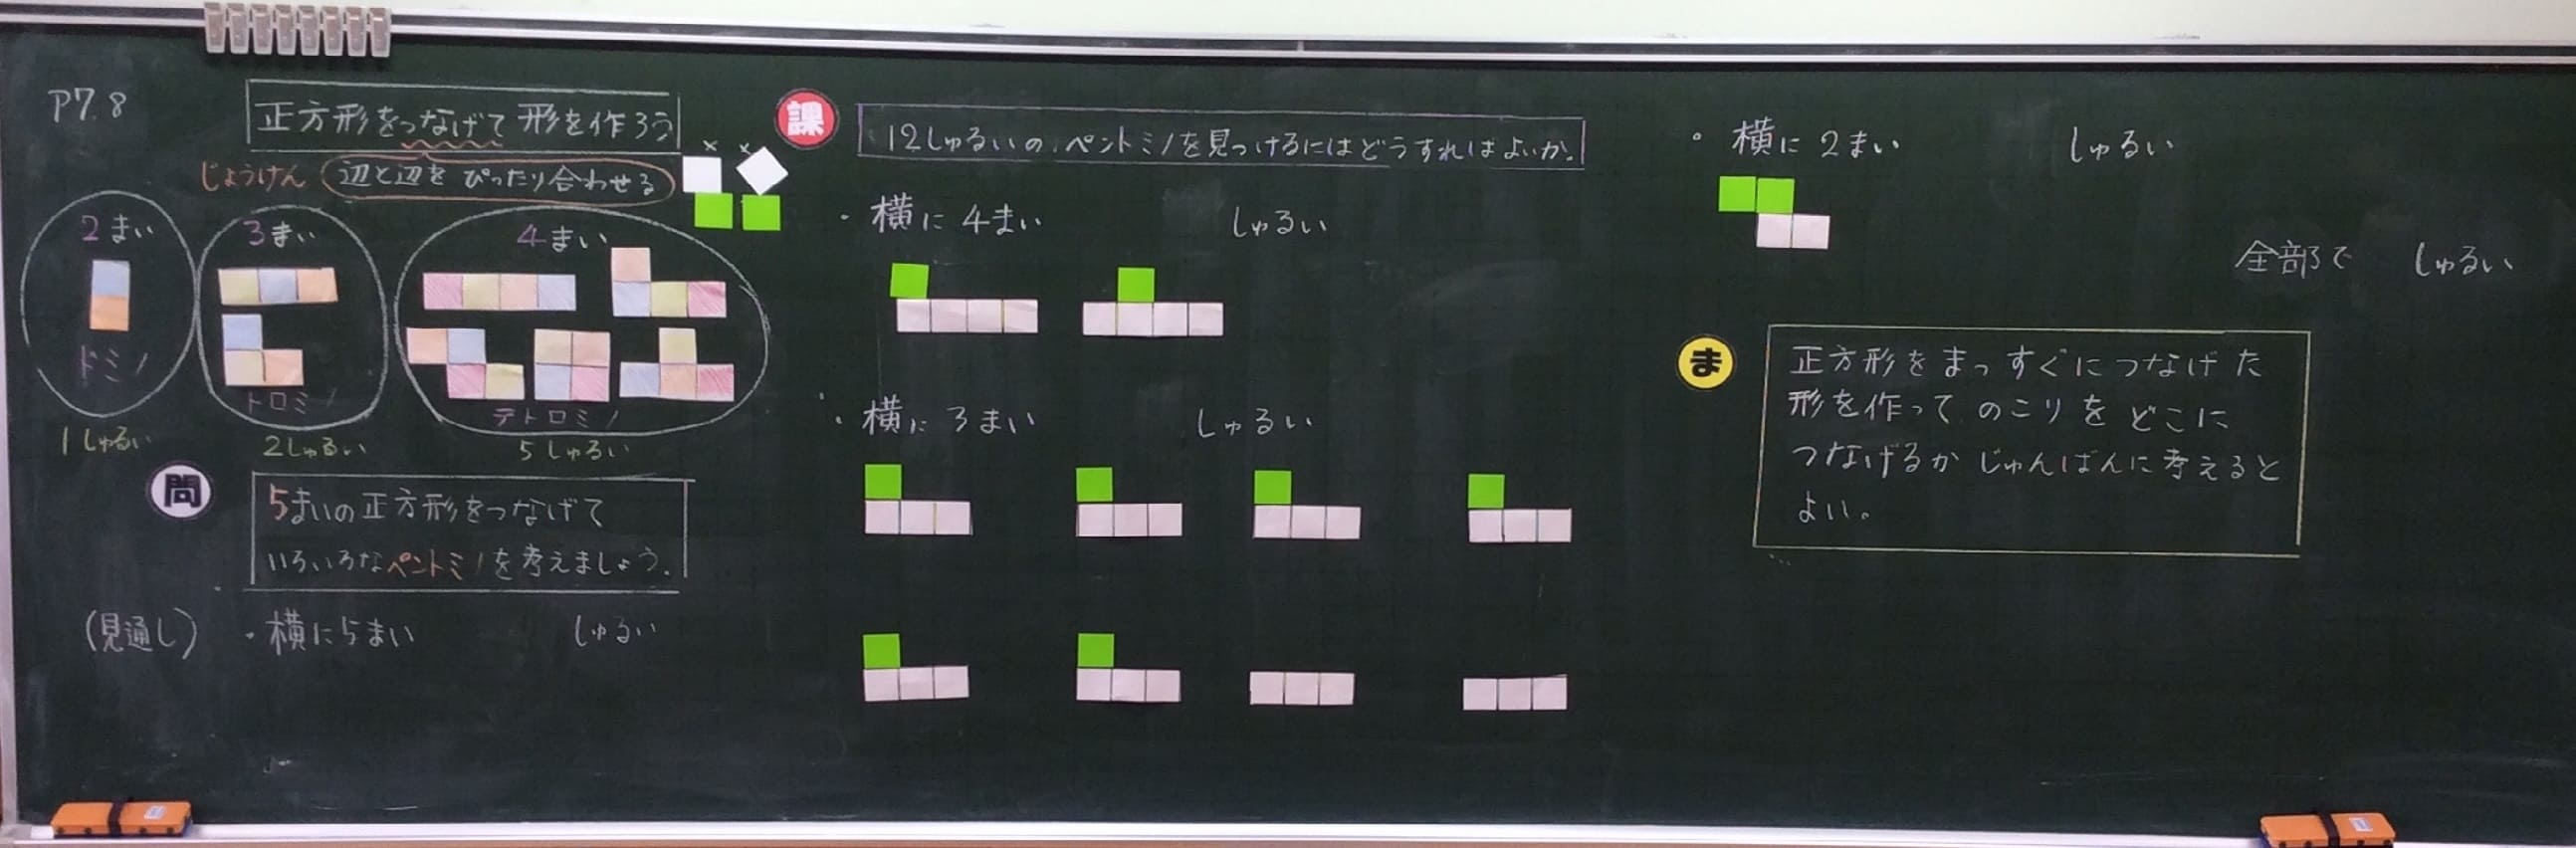 P7.8
正方形をつなげて形を作ろう
じょうけん 辺と辺を ぴったり合わせる
× ×
2まい
ドミノ
1しゅるい
3まい
トロミノ
2しゅるい
4まい
テトロミノ
5しゅるい
問
5まいの正方形をつなげて
いろいろなペントミノを考えましょう。
(見通し) ・横に5まい しゅるい
課
12しゅるいのペントミノを見つけるにはどうすればよいか。
・横に4まい しゅるい
・横に3まい しゅるい
・横に2まい しゅるい
全部で しゅるい
ま
正方形をまっすぐにつなげた
形を作って のこりを どこに
つなげるか じゅんばんに考えると
よい。